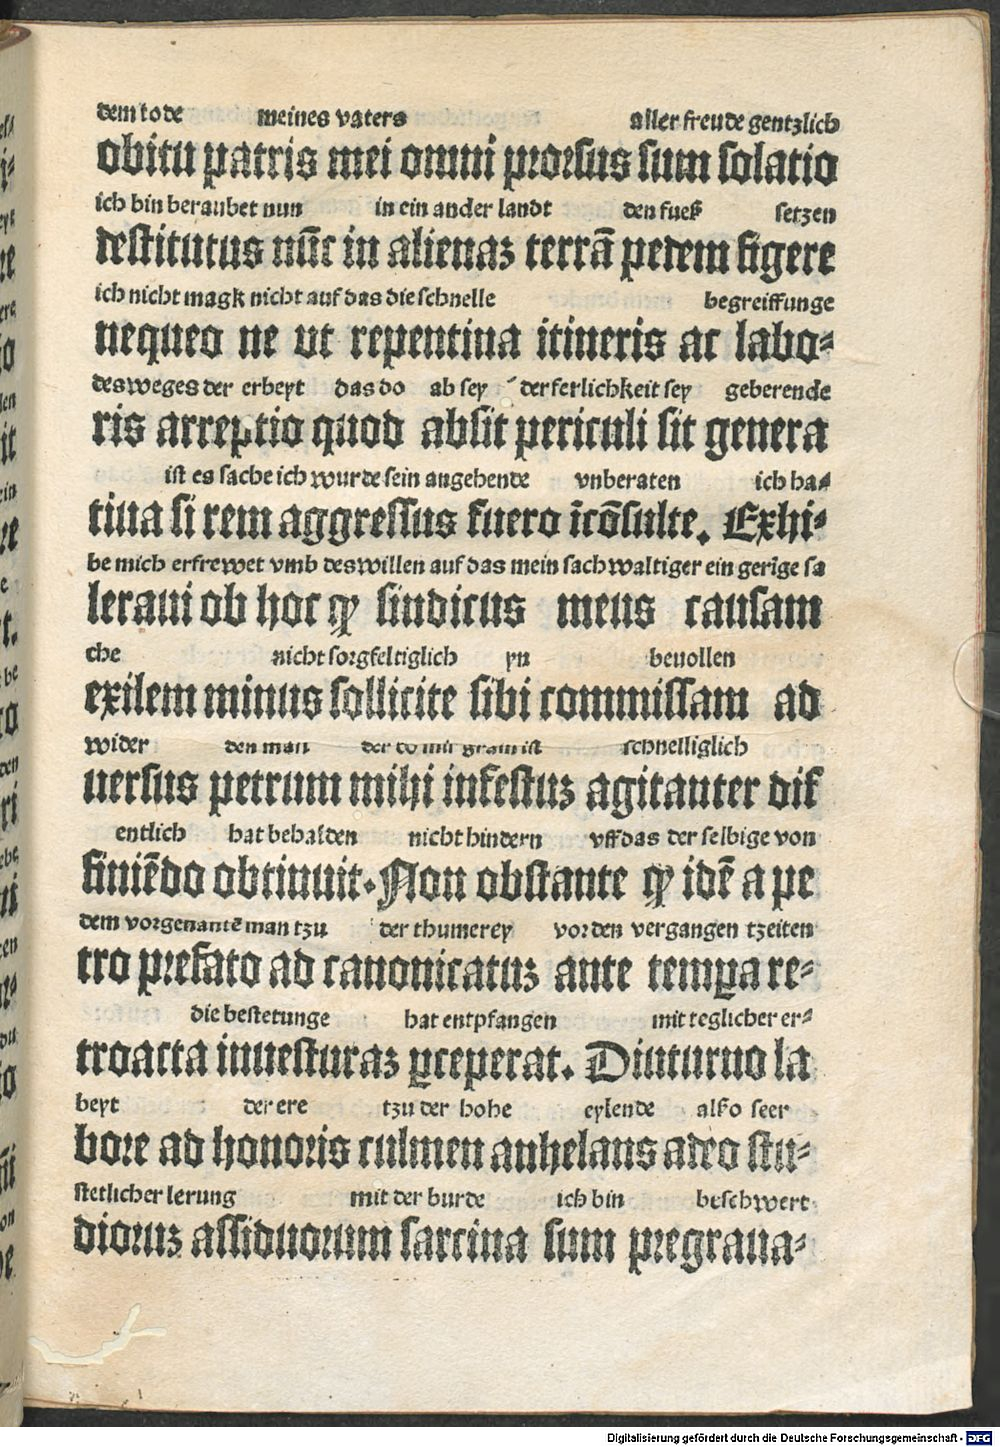 dem tode meines vaters aller freude gentzlich
obitu patris mei omni prorsus sum solatio
ich bin beraubet nun in ein ander landt den fueß setzen
destitutus nūc in alienaz terrā pedem figere
ich nicht magk nicht auf das die schnelle begreiffunge
nequeo ne ut repentina itineris ac labo⸗
des weges der erbeyt das do ab sey der ferlichkeit sey geberende
ris arreptio quod absit periculi sit genera
ist es sache ich wurde sein angehende vnberaten ich ha⸗
tiua si rem aggressus fuero icōsulte. Exhi⸗
be mich erfrewet vmb des willen auf das mein sachwaltiger ein gerīge sa
leraui ob hoc ꝙ sindicus meus causam
che nicht sorgfeltiglich yn beuollen
exilem minus sollicite sibi commissam ad
wider den man der do mir gram ist schnelliglich
uersus petrum mihi infestuz agitanter dif
entlich hat behalden nicht hindern vff das der selbige von
finiēdo obtinuit. Non obstante ꝙ idē a pe
dem vorgenantē man tzu der thumerey vor den vergangen tzeiten
tro prefato ad canonicatuz ante temꝑa re⸗
die bestetunge hat entpfangen mit teglicher er⸗
troacta inuesturaz ꝑceperat. Diuturno la
beyt der ere tzu der hohe eylende alßo seer
bore ad honoris culmen anhelans adeo stu⸗
stetlicher lerung mit der burde ich bin beschwert
dioruz assiduorum sarcina sum pregraua⸗
Digitalisierung gefördert durch die Deutsche Forschungsgemeinschaft - DFG